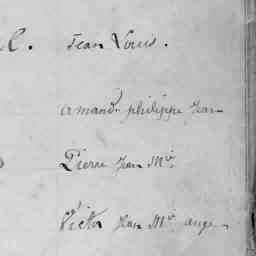 l. Jean Louis.
amand. philippe Jean
Pierre Jean Mie
Victor Jean Mie ange